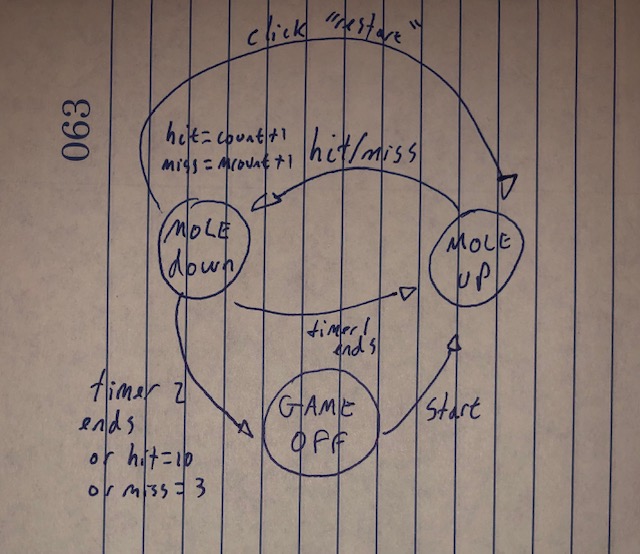 click "restart"
063
hit=count+1
miss=mcount+1
hit/miss
MOLE
down
MOLE
UP
timer 1
ends
timer 2
ends
or hit=10
or miss=3
GAME
OFF
Start